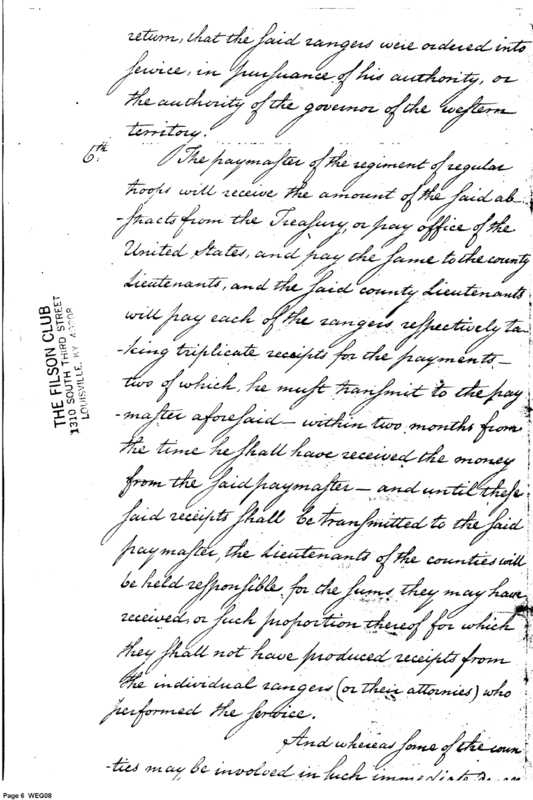 return, that the said rangers were ordered into
service, in pursuance of his authority, or
the authority of the governor of the western
territory.
6th: The paymaster of the regiment of regular
troops will receive the amount of the said ab
-stracts from the Treasury, or pay office of the
United States, and pay the same to the county
Lieutenants, and the said county Lieutenants
will pay each of the rangers respectively ta-
-king triplicate receipts for the payments—
two of which, he must transmit to the pay
-master aforesaid — within two months from
the time he shall have received the money
from the said paymaster — and until these
said receipts shall be transmitted to the said
paymaster, the Lieutenants of the counties will
be held responsible for the sums they may have
received, or such proportion thereof for which
they shall not have produced receipts from
the individual rangers (or their attornies) who
performed the service.
And whereas some of the coun
-ties may be involved in such immediate
THE FILSON CLUB
1310 SOUTH THIRD STREET
LOUISVILLE, KY 40208
Page 6 WEG08